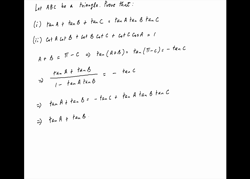 Let ABC be a triangle. Prove that:
(i) tan A + tan B + tan C = tan A tan B tan C
(ii) Cot A Cot B + Cot B Cot C + Cot C Cot A = 1
A + B = π - C ⇒ tan (A+B) = tan (π-C) = - tan C
⇒ (tan A + tan B) / (1 - tan A tan B) = - tan C
⇒ tan A + tan B = - tan C + tan A tan B tan C
⇒ tan A + tan B